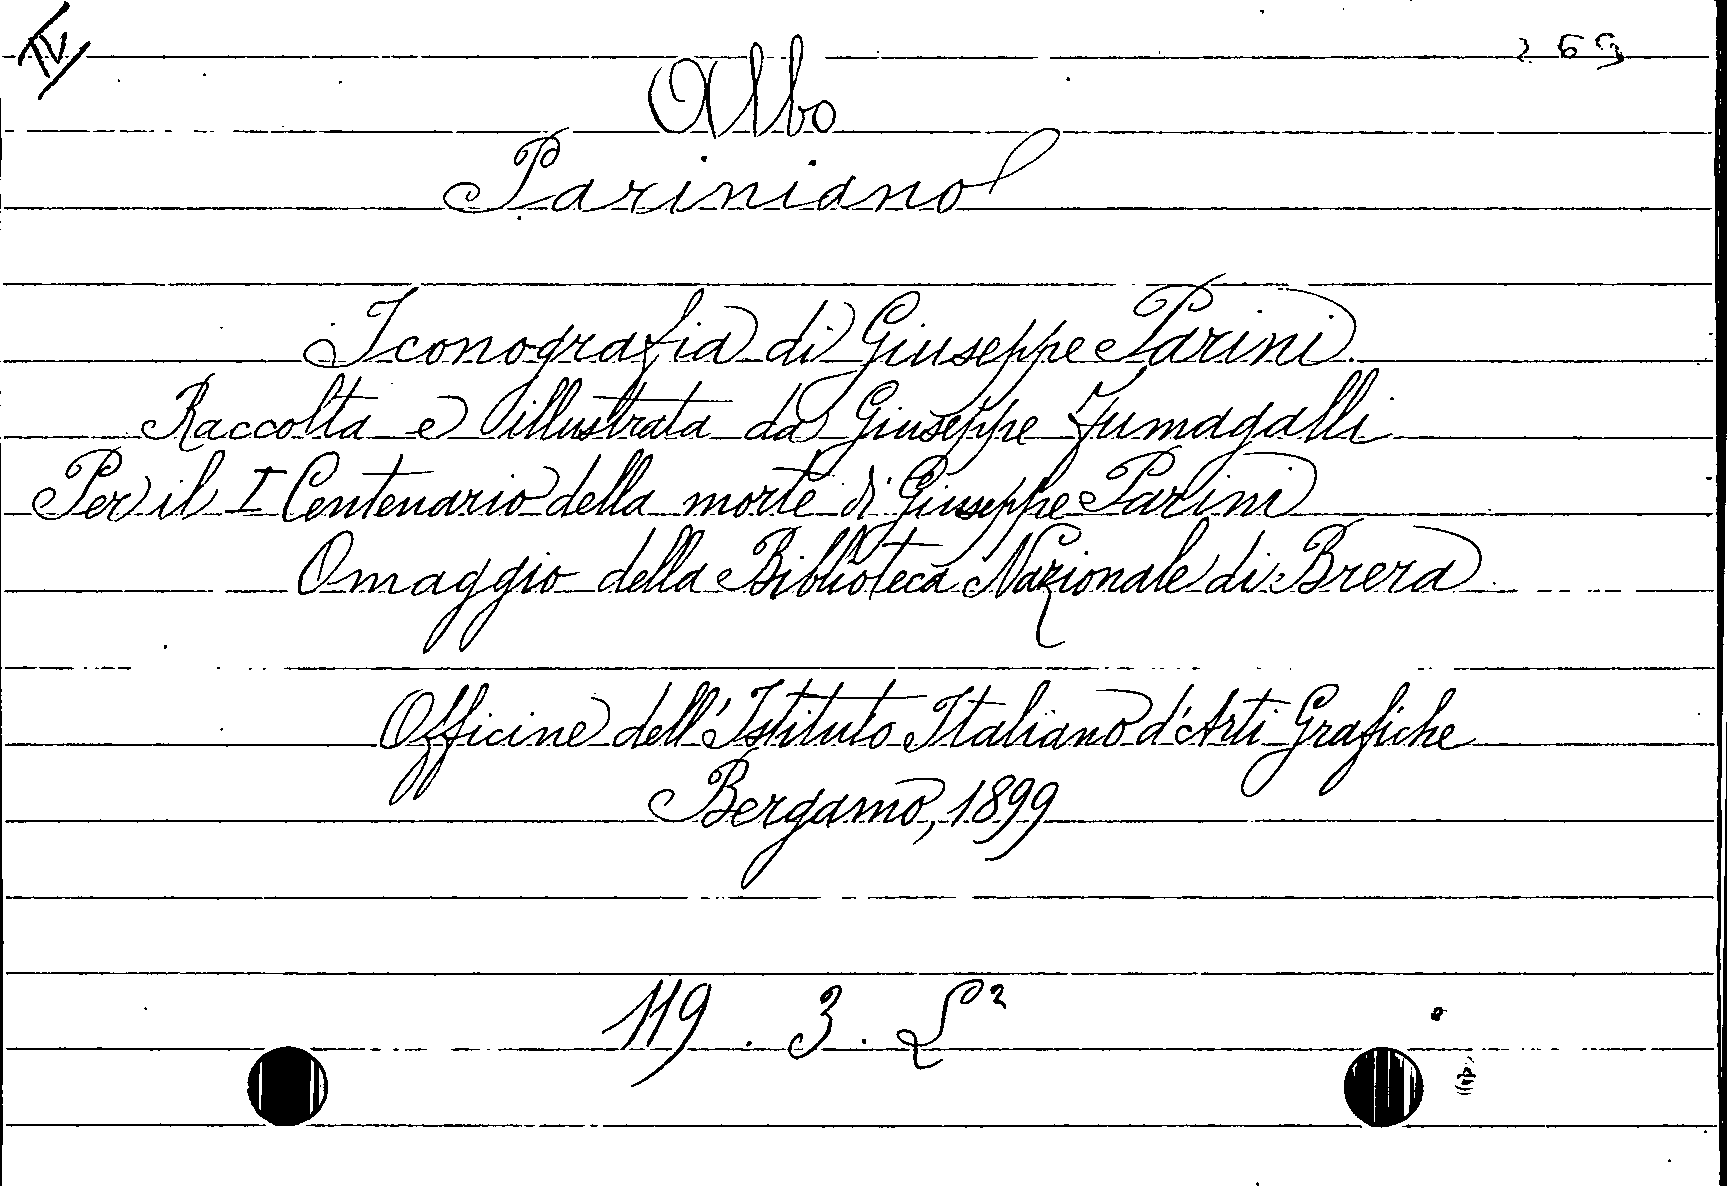 IV
269
Albo
Pariniano
Iconografia di Giuseppe Parini
Raccolta e illustrata da Giuseppe Fumagalli
Per il I Centenario della morte di Giuseppe Parini
Omaggio della Biblioteca Nazionale di Brera
Officine dell'Istituto Italiano d'Arti Grafiche
Bergamo, 1899
119 . 3 . L²